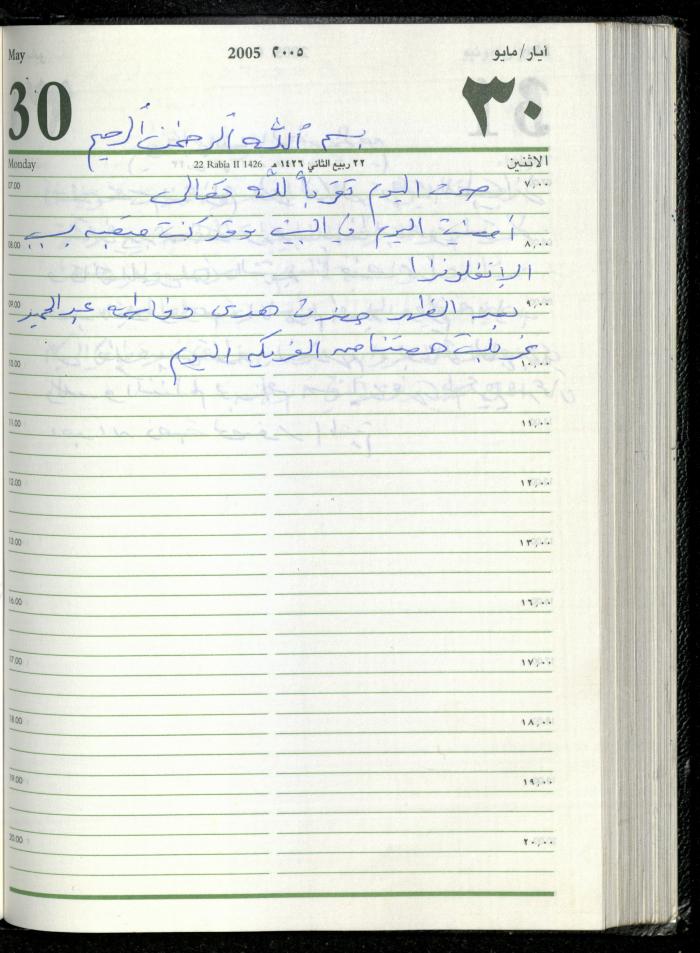 May 2005 ٢٠٠٥ أيار/مايو
30 ٣٠
بسم الله الرحمن الرحيم
Monday 22 Rabia II 1426 ٢٢ ربيع الثاني ١٤٢٦ هـ الاثنين
07.00 صمت اليوم تقرباً لله تعالى ٧,٠٠
أمضيت اليوم في البيت وقد كنت متعبه بسبب
08.00 ٨,٠٠
الانفلونزا
09.00 ٩,٠٠
بعد الظهر حضرت هدى وفاطمه عبدالحميد
غربلت حصتنا من الفريكه اليوم
10.00 ١٠,٠٠
11.00 ١١,٠٠
12.00 ١٢,٠٠
13.00 ١٣,٠٠
16.00 ١٦,٠٠
17.00 ١٧,٠٠
18.00 ١٨,٠٠
19.00 ١٩,٠٠
20.00 ٢٠,٠٠